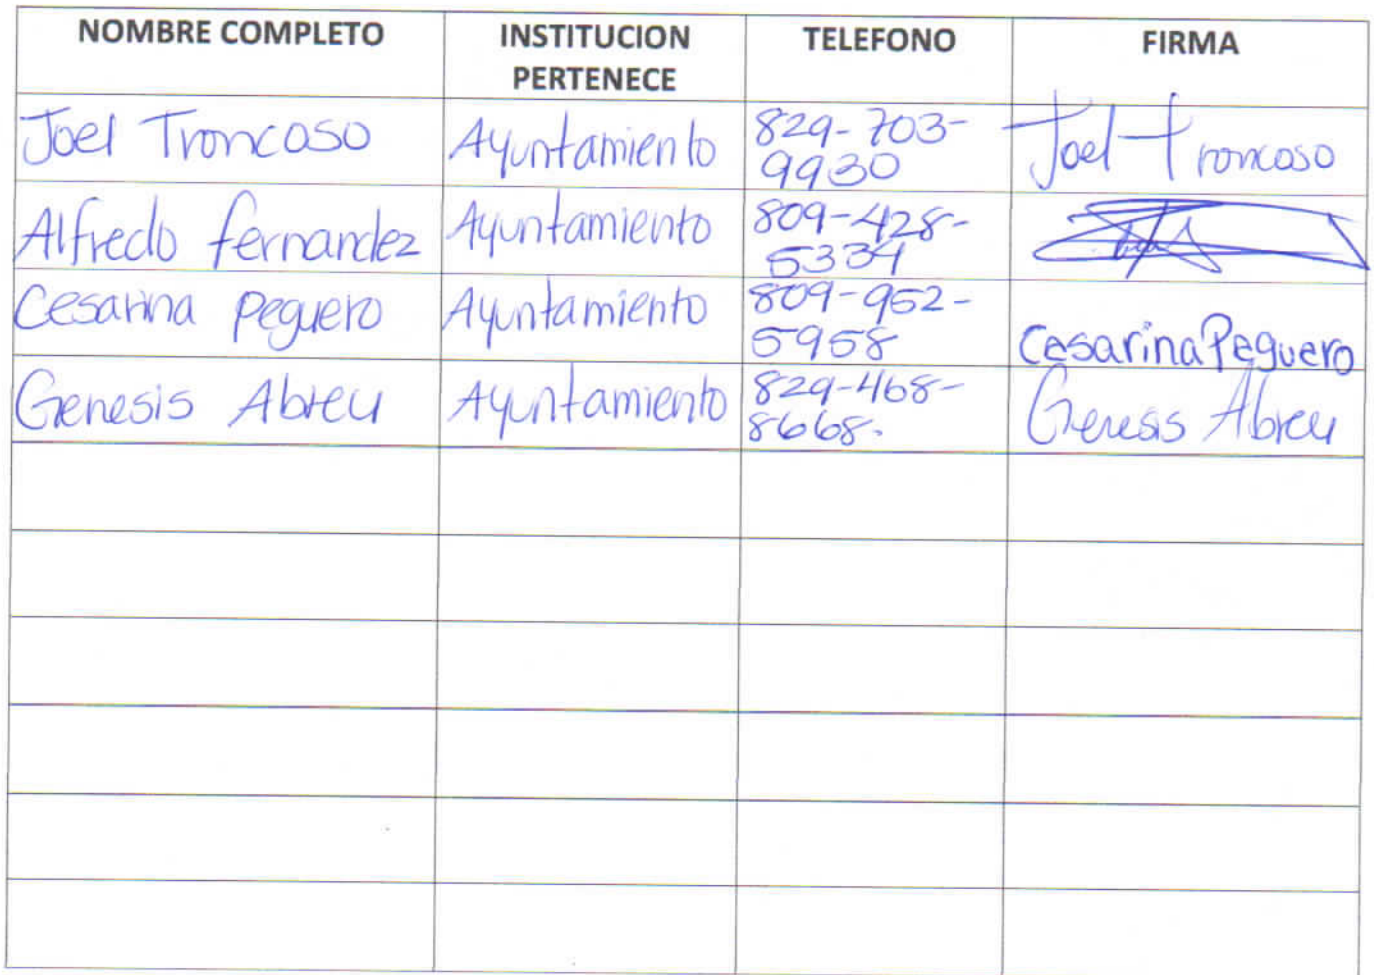 NOMBRE COMPLETO INSTITUCION PERTENECE TELEFONO FIRMA
Joel Troncoso Ayuntamiento 829-703-9930 Joel Troncoso
Alfredo fernandez Ayuntamiento 809-428-5334
Cesarina Peguero Ayuntamiento 809-952-5958 Cesarina Peguero
Genesis Abreu Ayuntamiento 829-468-8668. Genesis Abreu